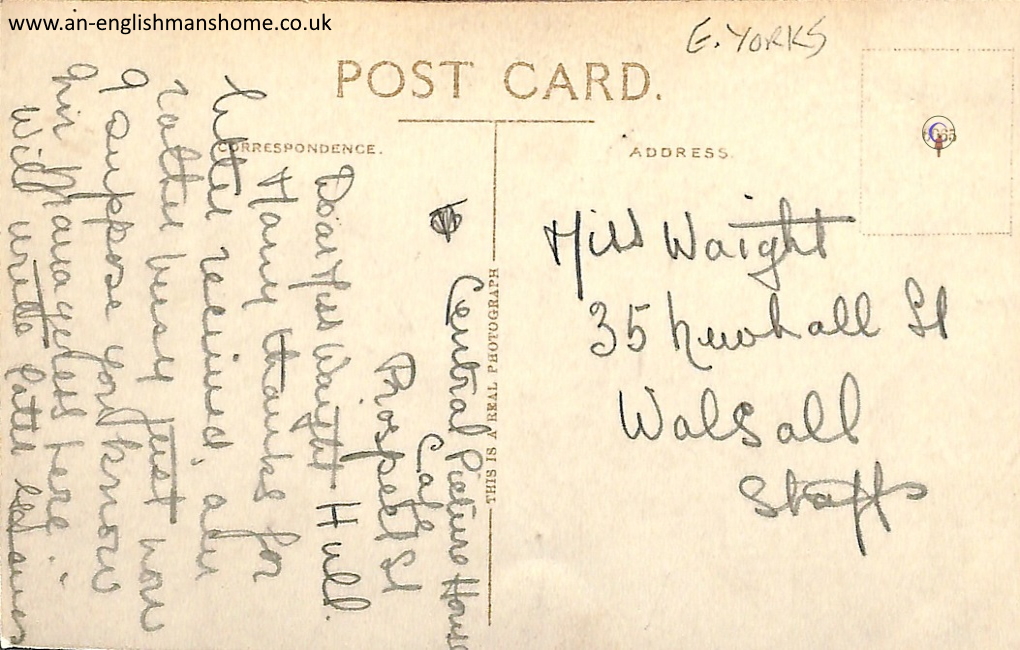 www.an-englishmanshome.co.uk
E. YORKS
POST CARD.
CORRESPONDENCE.
ADDRESS.
THIS IS A REAL PHOTOGRAPH
Central Picture House
Cafe
Prospect St
Hull.
Dear Miss Waight
Many thanks for
letter received, am
rather busy just now
I suppose you know
I'm Manageress here.
Will write later
Miss Waight
35 Newhall St
Walsall
Staffs